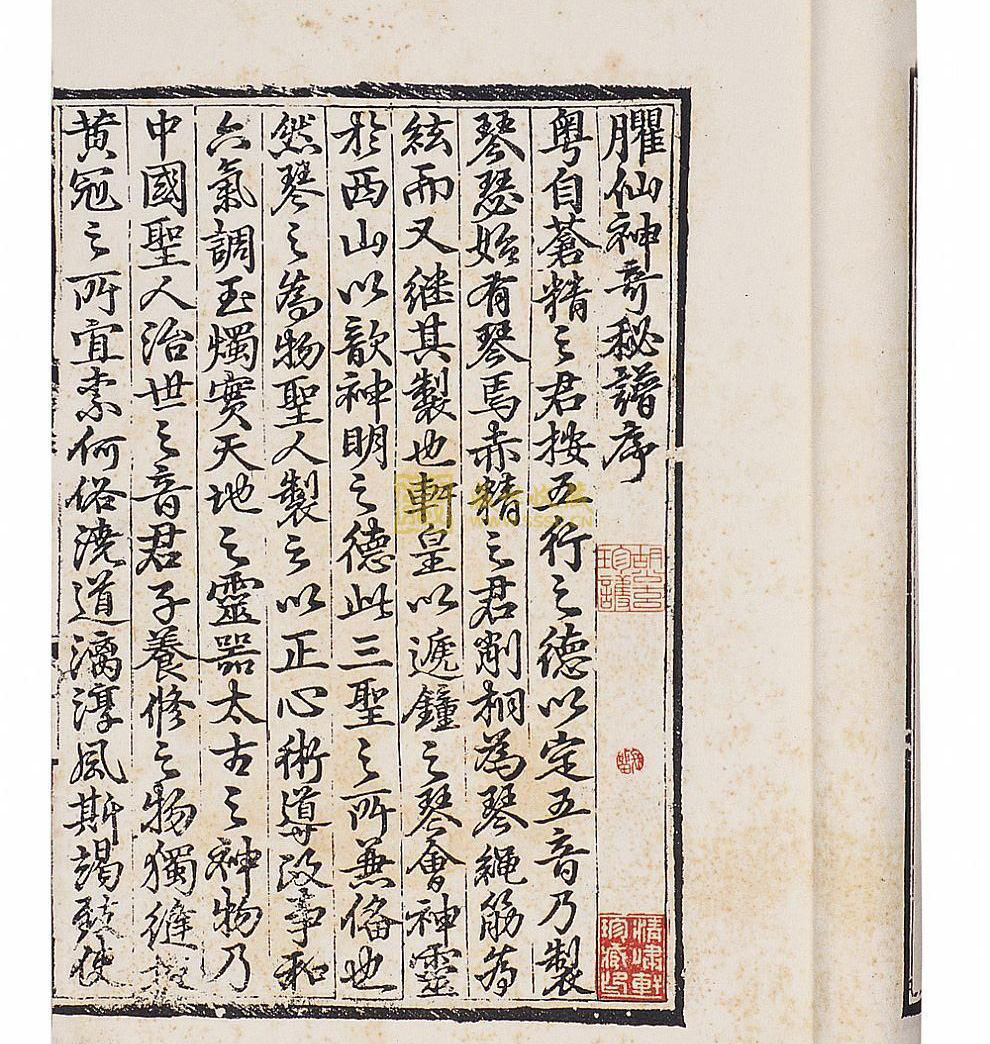 臞仙神竒秘譜序
粤自蒼精之君按五行之德以定五音乃製
琴瑟始有琴焉赤精之君削桐為琴繩筋為
絃而又继其製也軒皇以遞鐘之琴會神靈
於西山以歆神明之德此三聖之所兼俻也
然琴之為物聖人製之以正心術導政事和
六氣調玉燭實天地之靈噐太古之神物乃
中國聖人治世之音君子養修之物獨縫掖
黄冠之所宜索何俗澆道漓淳風斯竭致使